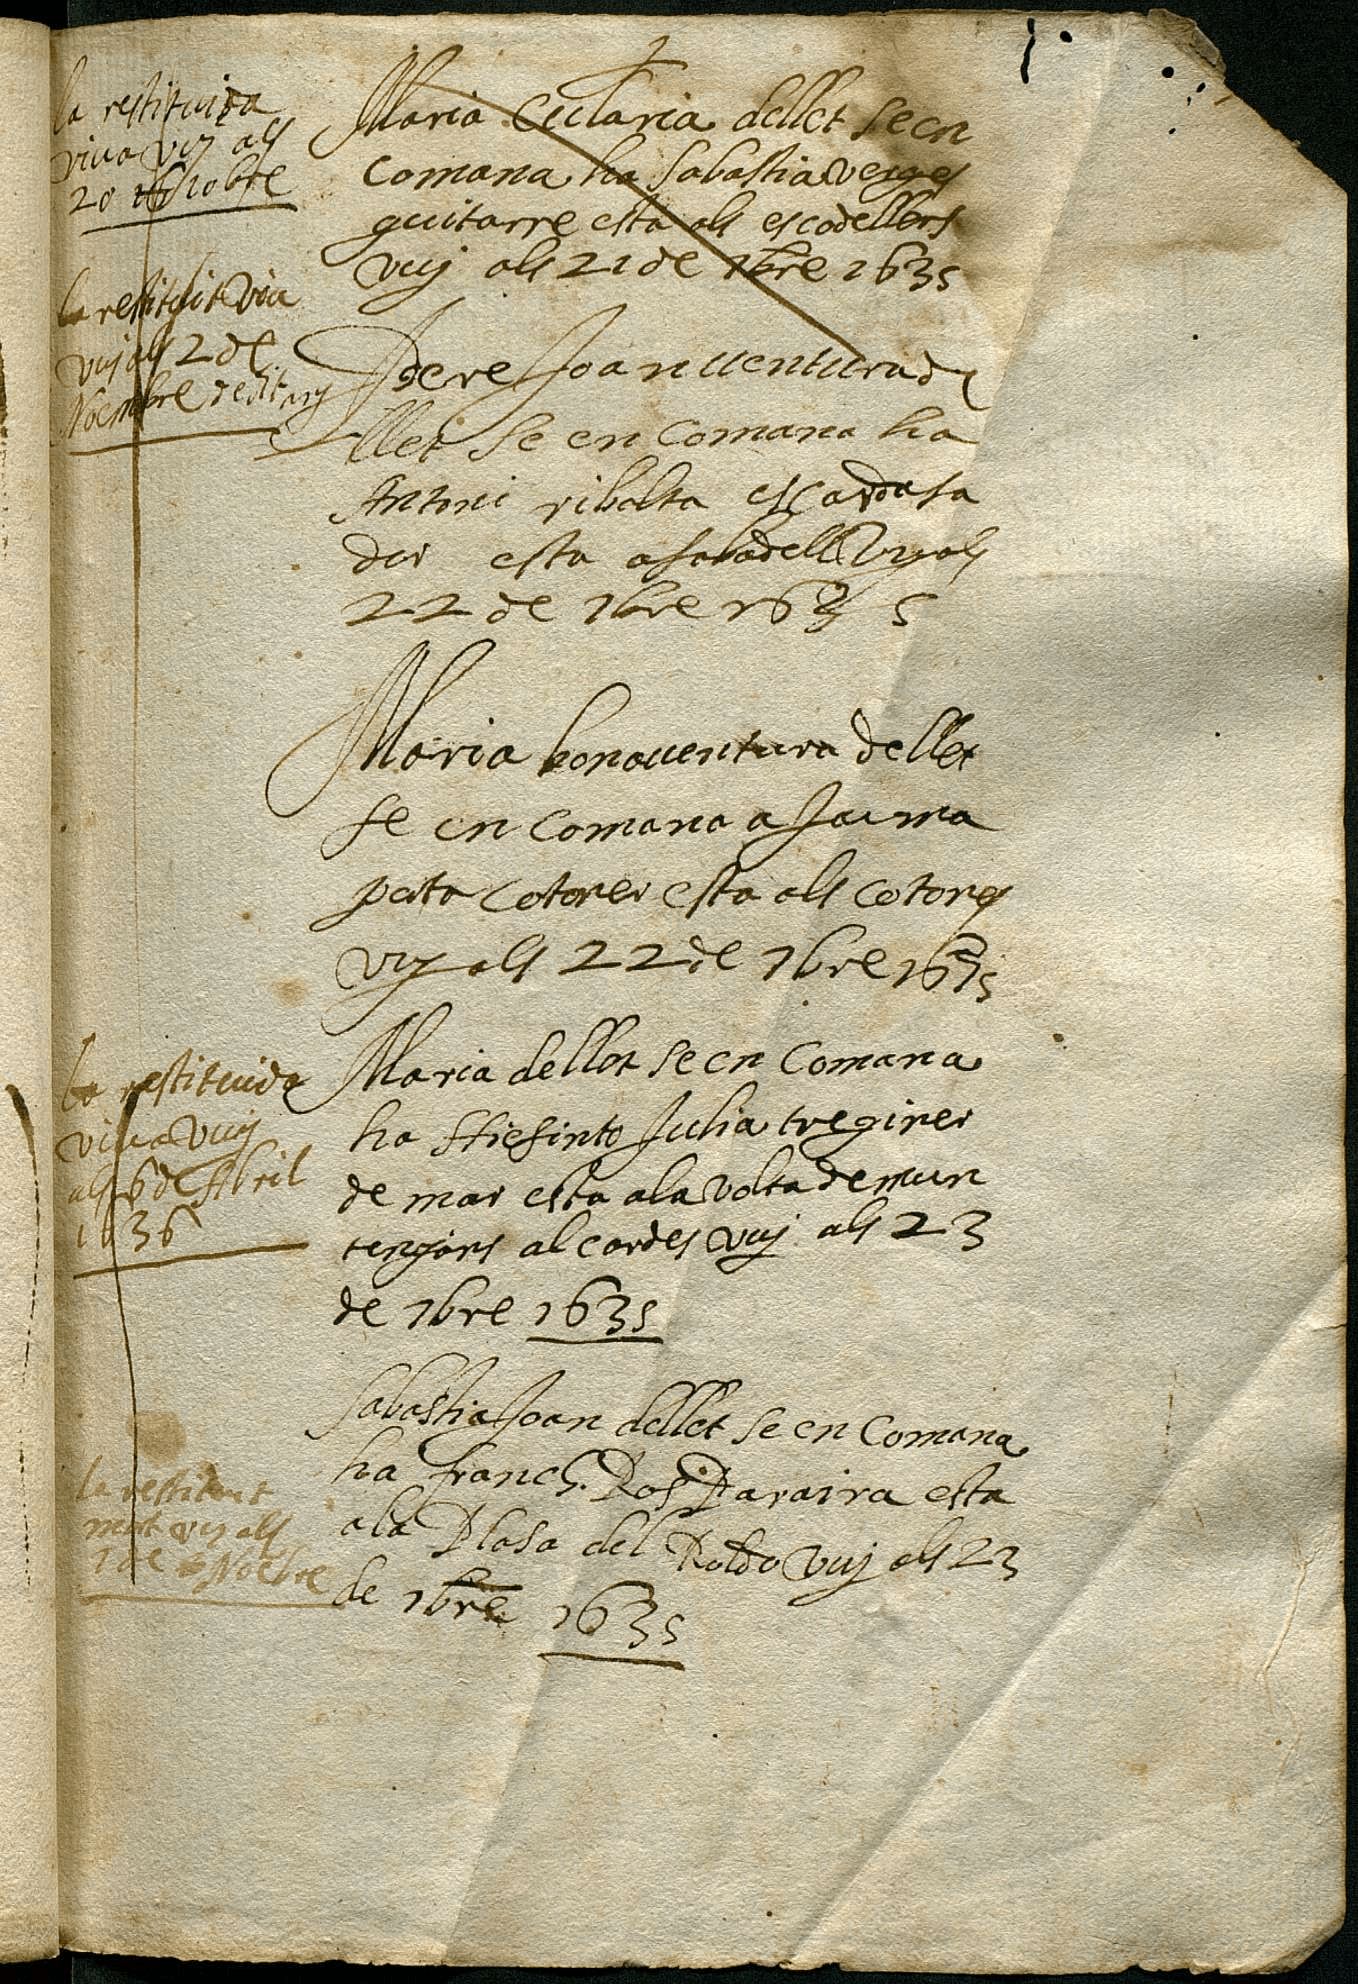 Maria Eularia dellet se en
Comana ha Sabastia verges
guitarre esta als escodellers
vuy als 21 de 7bre 1635
la restituida
viua vuy als
20 octobre
Pere Joan uentura de
llet se en Comana ha
Antoni ribalta escardasa
dor esta a sabadell vuy als
22 de 7bre 1635
la restituit viu
vuy als 2 de
Noembre de dit any
Maria bonauentura dellet
se en comana a Jauma
cotoner esta als cotoners
vuy als 22 de 7bre 1635
Maria dellet se en Comana
ha Hiesinto Julia treginer
de mar esta a la volta de mun
als cordes vuy als 23
de 7bre 1635
la restituida
viua vuy
als 6 de Abril
1636
Sabastia Joan dellet se en Comana
ha franch. Ros Paraira esta
a la Plasa del vuy als 23
de 7bre 1635
la restituit
mort vuy als
1 de Noebre